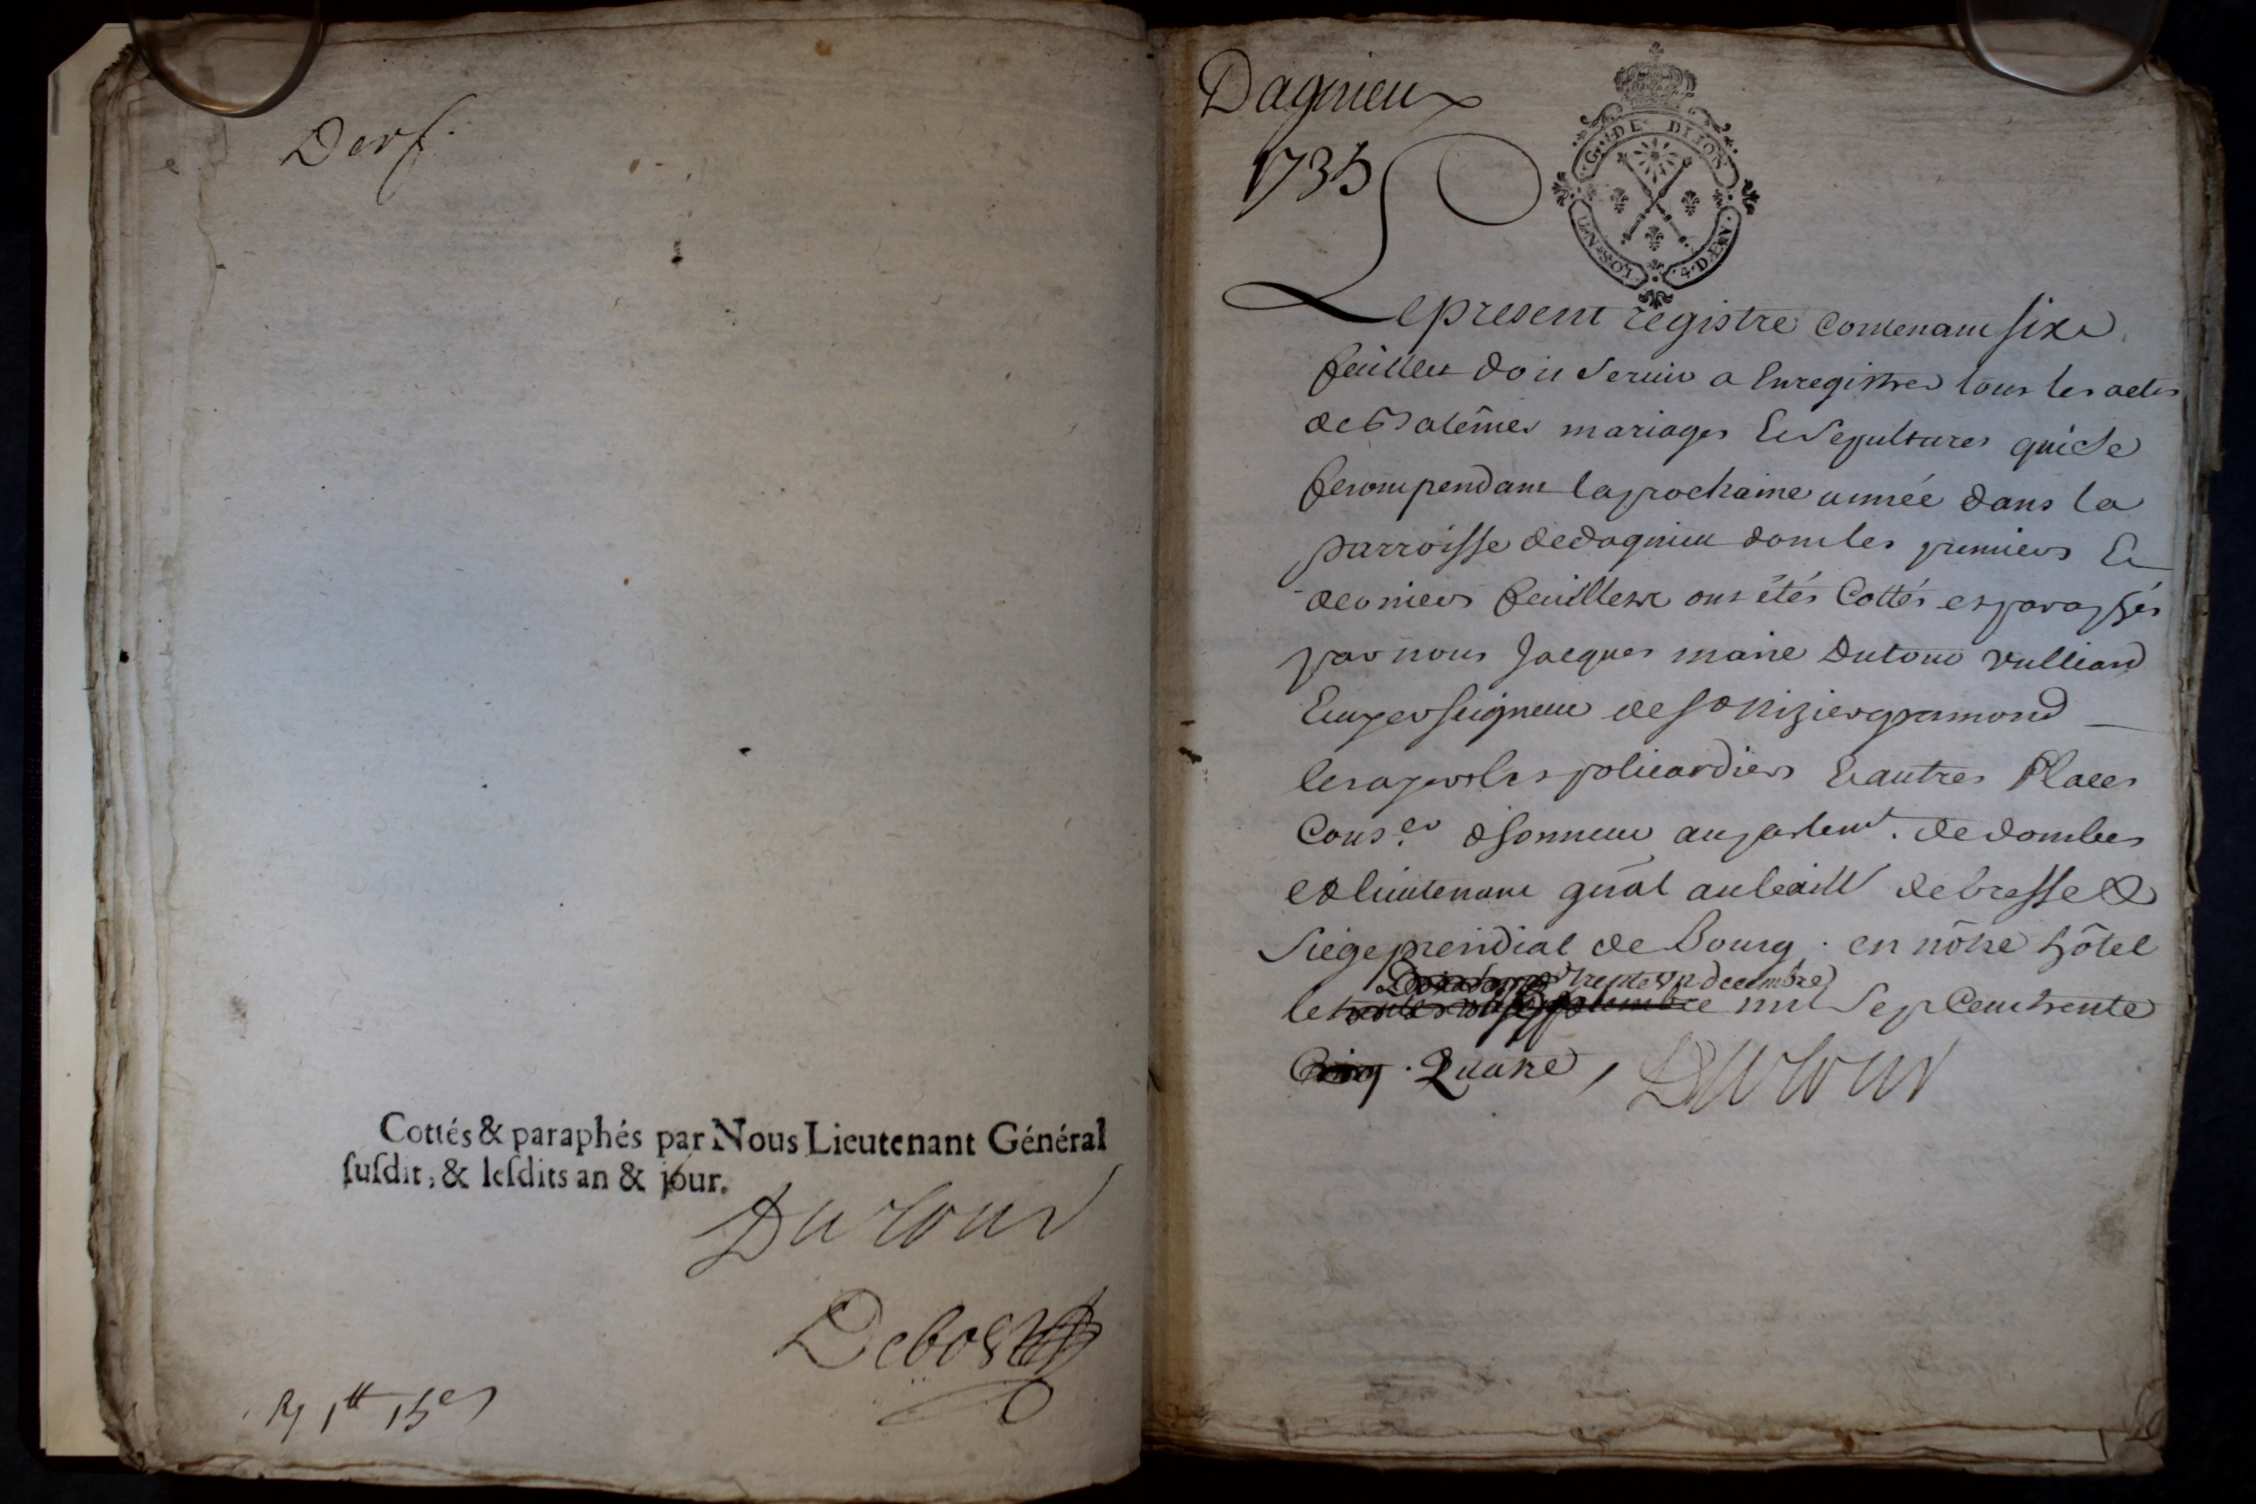 Derf.
Cottés & paraphés par Nous Lieutenant Général
ſuſdit, & leſdits an & jour.
Dutour
Debost
R 1tt 15s
Dagnieu
1735
G. DE DIJON
UN. SOL. 4. DEN.
Le present registre contenant six
feuillets doit servir a Enregistrer tous les actes
de Batêmes mariages Et Sepultures qui se
feront pendant la prochaine année dans la
parroisse de dagnieu dont les premiers Et
derniers feuillets ont étés Cottés et paraphés
par nous Jacques marie Dutour Vulliard
Ecuyer seigneur de St Nizier gramond
les policardiers Et autres Places
Conser. d'honneur au parlemt. de dombes
et lieutenant gñal au baill de bresse &
Siege presidial de Bourg. en nôtre hôtel
trente un decembre
le mil Sept Cent trente
Cinq. Quatre, Dutour